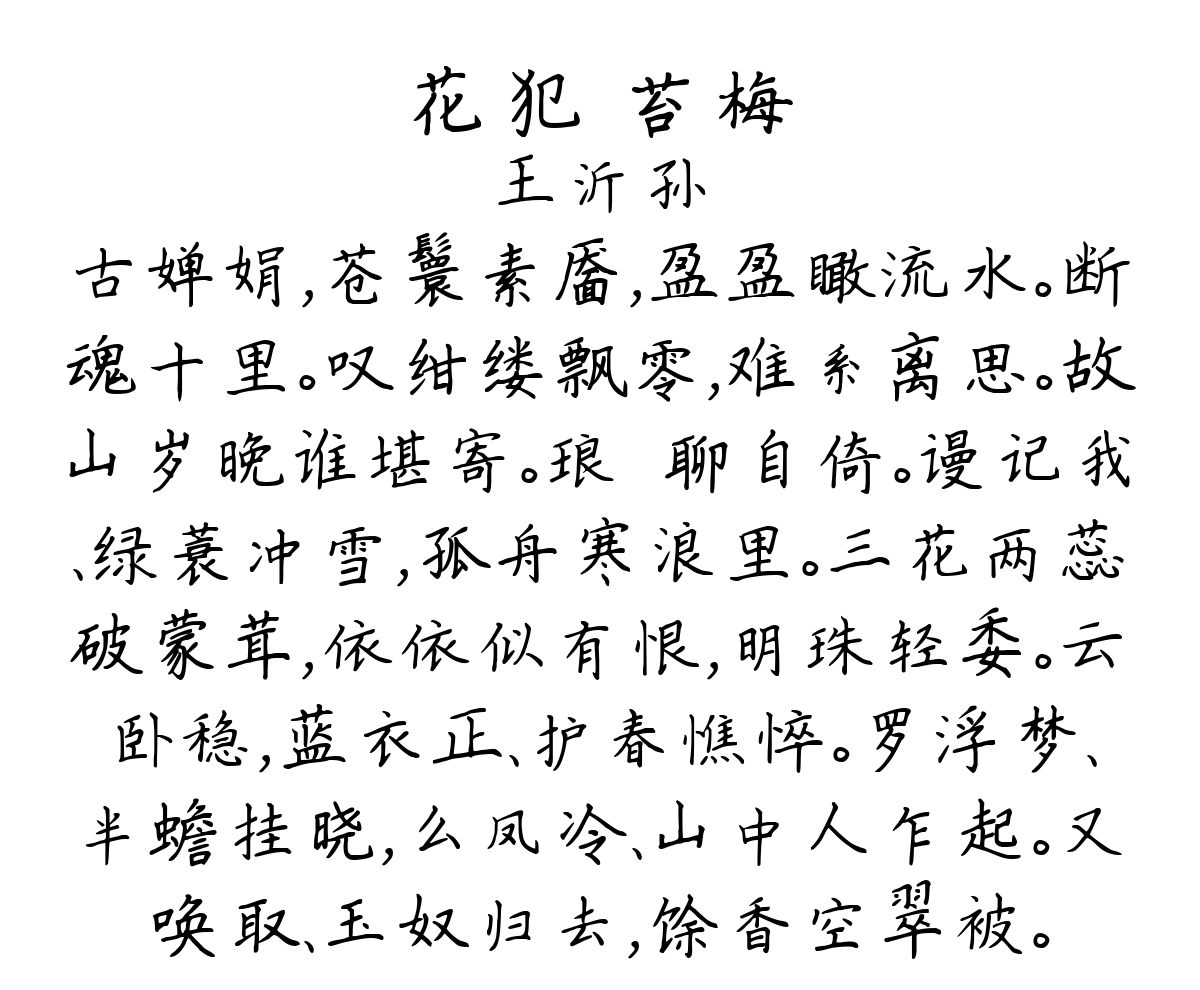 花犯 苔梅
王沂孙
古婵娟,苍鬟素靥,盈盈瞰流水。断
魂十里。叹绀缕飘零,难系离思。故
山岁晚谁堪寄。琅 聊自倚。谩记我
、绿蓑冲雪,孤舟寒浪里。三花两蕊
破蒙茸,依依似有恨,明珠轻委。云
卧稳,蓝衣正、护春憔悴。罗浮梦、
半蟾挂晓,么凤冷、山中人乍起。又
唤取、玉奴归去,馀香空翠被。